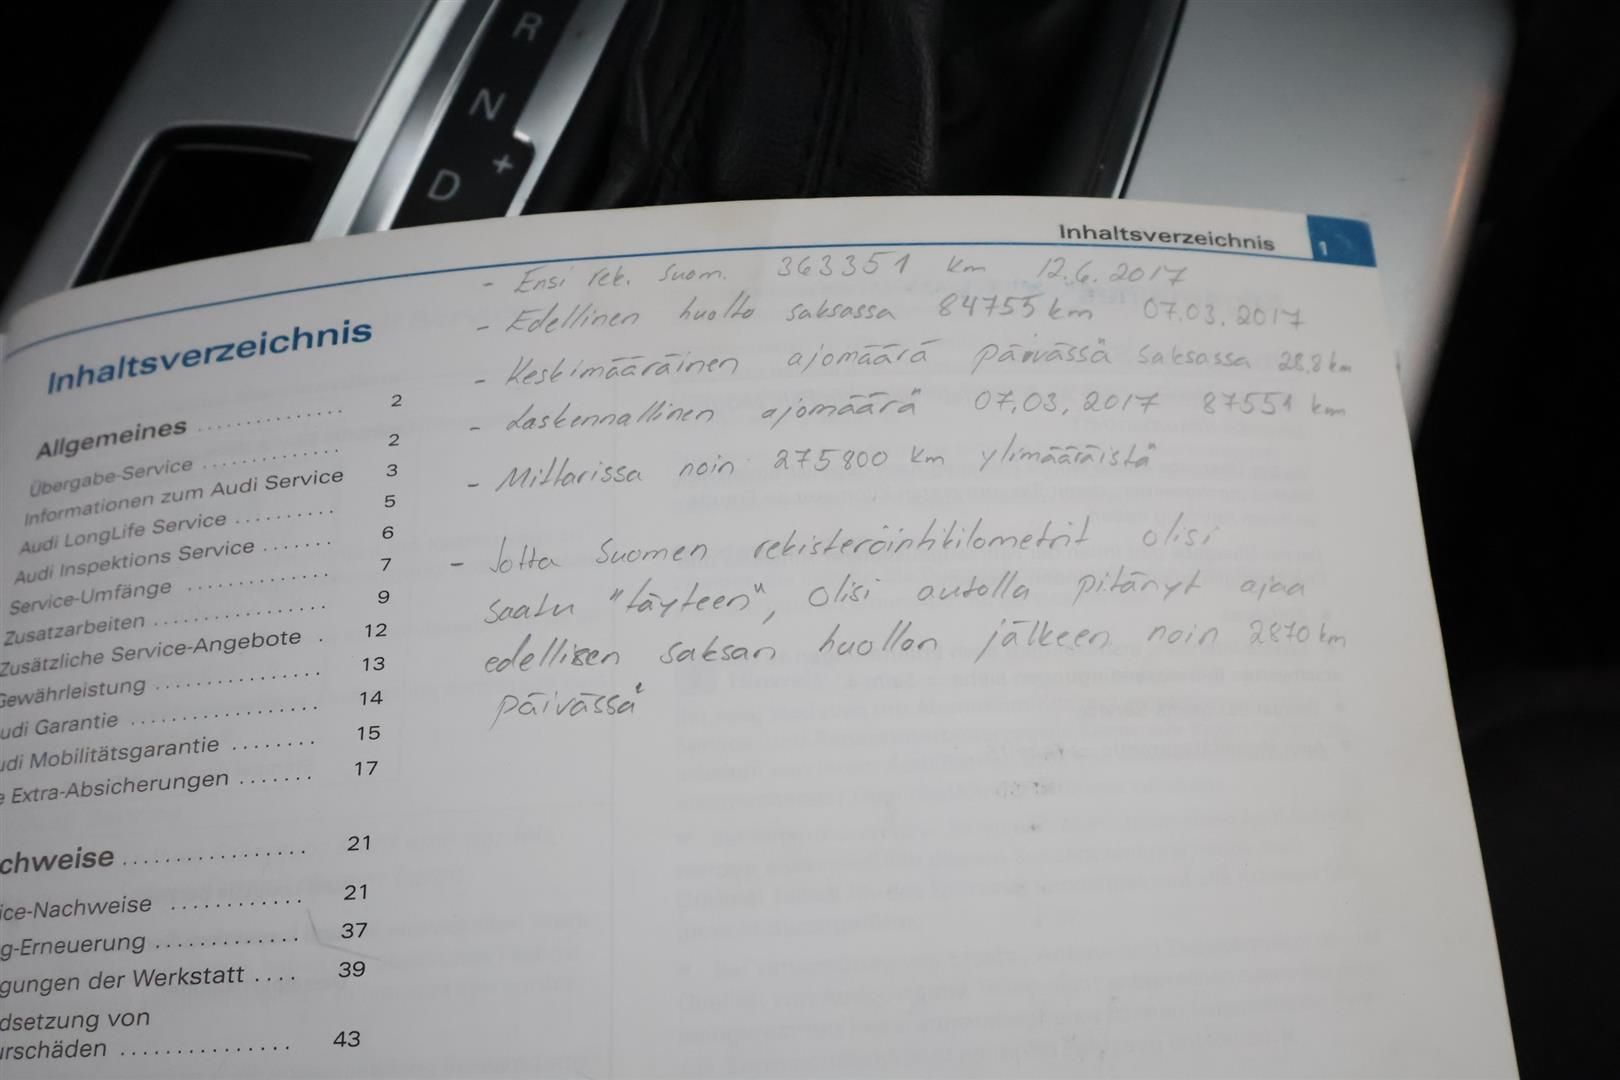 R
N
D +
Inhaltsverzeichnis 1
- Ensi rek. Suom. 363351 km 12.6.2017
- Edellinen huolto saksassa 84755 km 07.03.2017
- Keskimääräinen ajomäärä päivässä saksassa 28,8 km
- Laskennallinen ajomäärä 07.03.2017 87551 km
- Mittarissa noin 275800 km ylimääräistä
- Jotta Suomen rekisteröintikilometrit olisi
saatu "täyteen", olisi autolla pitänyt ajaa
edellisen saksan huollon jälkeen noin 2870 km
päivässä
Inhaltsverzeichnis
Allgemeines .............. 2
Übergabe-Service .............. 2
Informationen zum Audi Service 3
Audi LongLife Service .......... 5
Audi Inspektions Service ....... 6
Service-Umfänge .............. 7
Zusatzarbeiten ................ 9
Zusätzliche Service-Angebote . 12
Gewährleistung ................ 13
udi Garantie .................. 14
udi Mobilitätsgarantie ........ 15
e Extra-Absicherungen ....... 17
chweise ................. 21
ice-Nachweise ............ 21
g-Erneuerung ............. 37
gungen der Werkstatt .... 39
dsetzung von
urschäden ............... 43